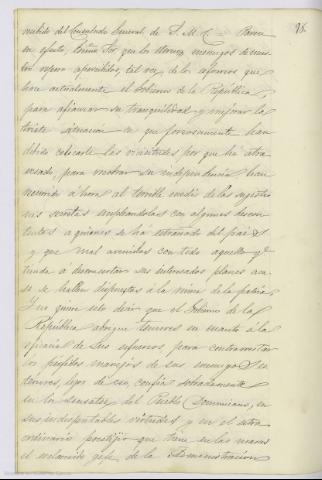 95.
recibido del Consulado General de S. M. C. Parece
en efecto, Exmo Sor, que los eternos enemigos de nues-
tro reposo apercibidos, tal vez, de los esfuerzos que
hace actualmente el Gobierno de la República
para afianzar su tranquilidad y mejorar la
triste situacion en que forzosamente han
debido colocarla las vicisitudes por que ha atra-
vesado, para recobrar su independencia han
recurrido ahora al terrible medio de las sugestio-
nes secretas empleandolas con algunos descon-
tentos a quienes se ha estrañado del pais
y que mal avenidos con todo aquello qe
tienda a desconcertar sus intrincados planes aca-
so se hallen dispuestos á la ruina de la patria.
Y no quiero esto decir que el Gobierno de la
República abrigue temores en cuanto á la
eficacia de sus esfuerzos para contrarrestar
los pérfidos manejos de sus enemigos
lejos de eso confia sobradamente
en la sensatez del Pueblo Dominicano, en
sus indisputables virtudes y en el estra-
ordinario prestijio que tiene en las masas
el esclarecido gefe de la Administracion